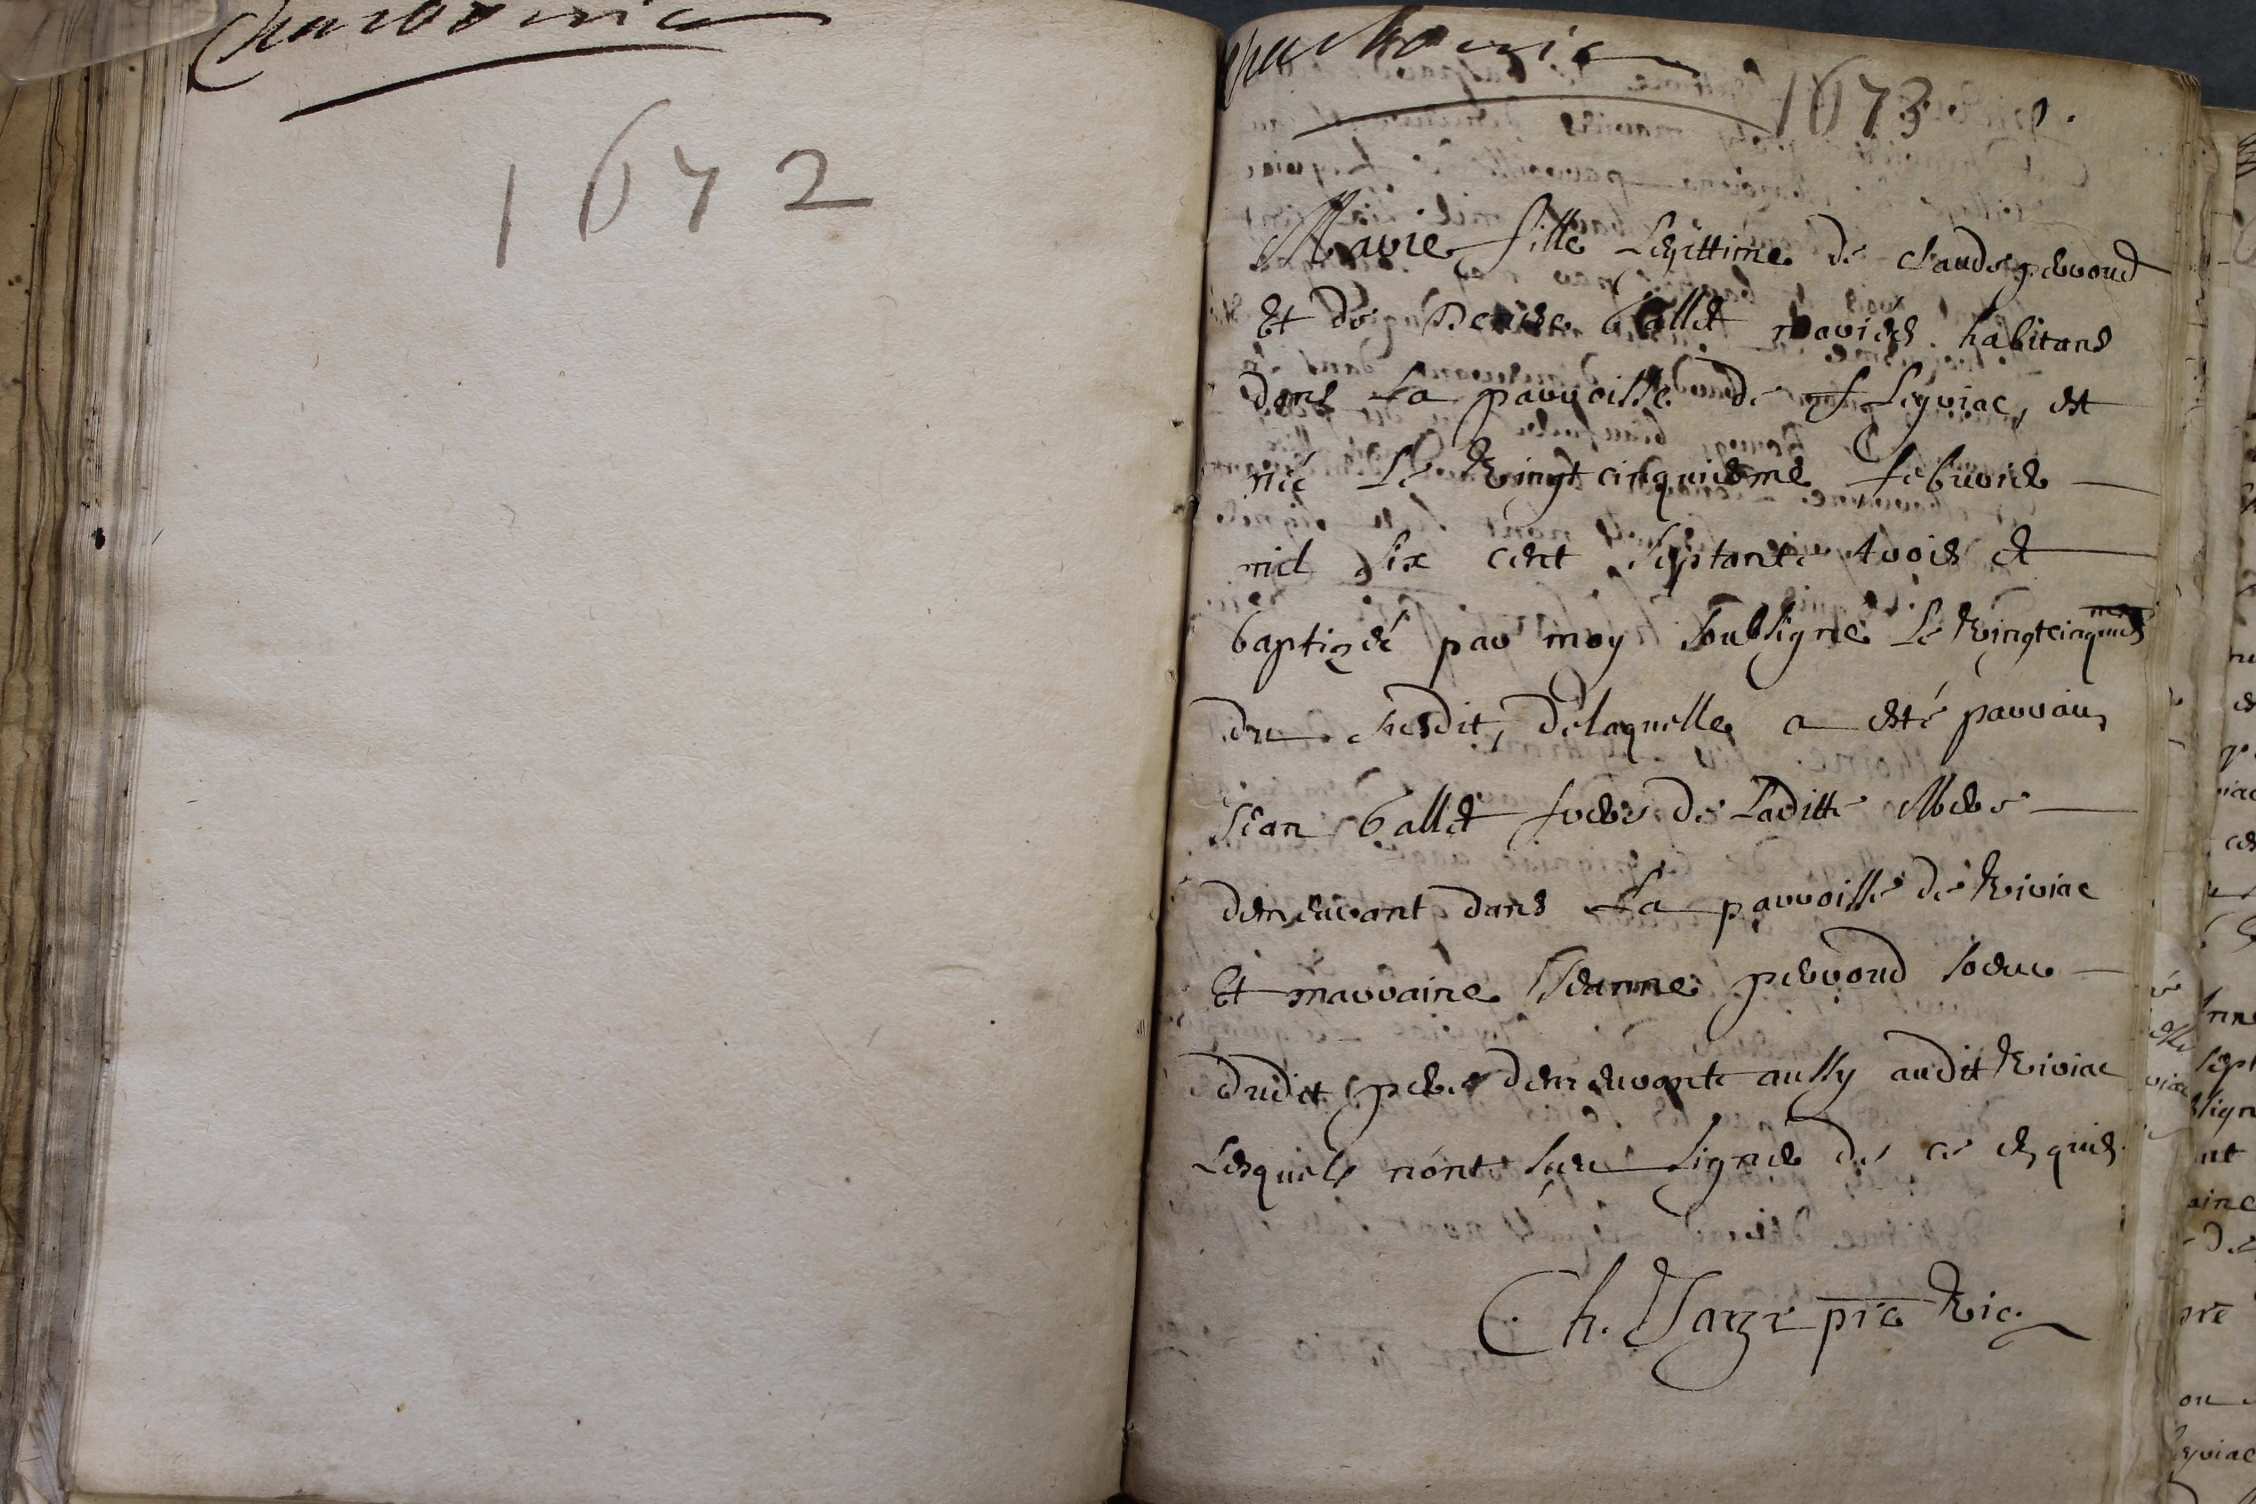 Charbonnie
1672
1673
Marie fille Legittime de claude perroud
Et de Denise Gallet mariés habitans
dans La parroisse de Leyriac, est
née Le Vingt cinquiesme febvrier
mil six cent septante trois et
baptizée par moy soubsigné Le Vingtcinquies
me
du susdit, delaquelle a esté parrain
Jean Gallet frere de Laditte Mere
demeurant dans La parroisse de Viriac
Et marraine Jeanne perroud soeur
dudit pere demeurante aussy audit Viriac
Lesquels n'ont sceu signer de ce enquis
Ch. pre Vic.